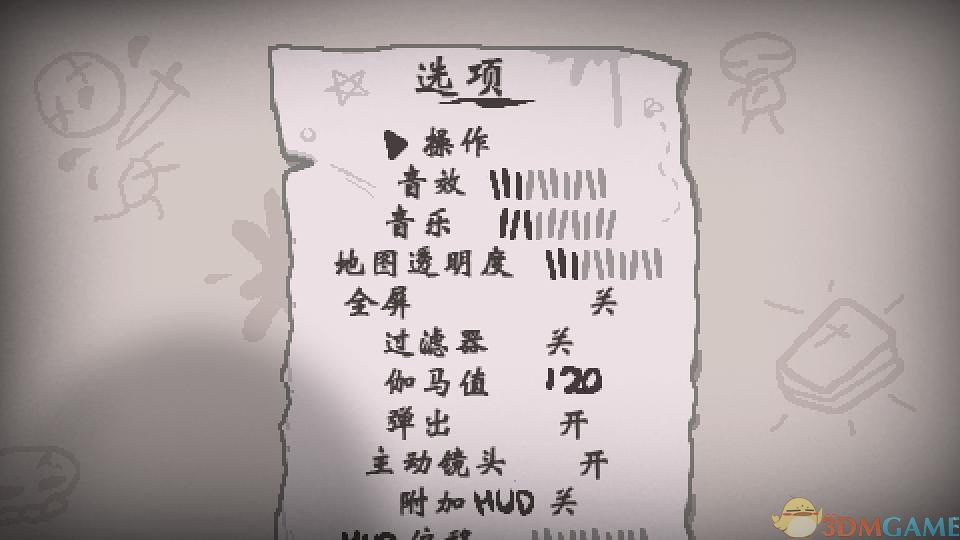 选项
操作
音效
音乐
地图透明度
全屏 关
过滤器 关
伽马值 120
弹出 开
主动镜头 开
附加HUD 关
HUD位移
3DMGAME